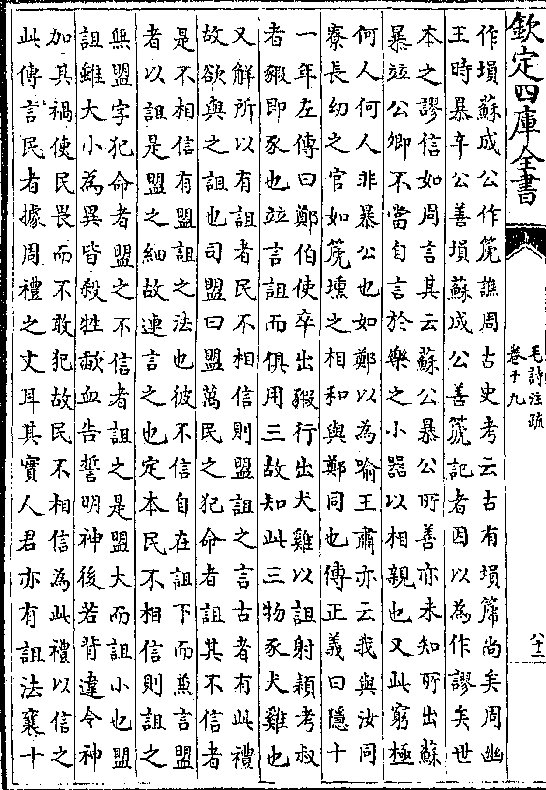 欽定四庫全書
毛詩注疏
卷十九
八十二
作塤蘇成公作篪譙周古史考云古有塤篪尚矣周幽
王時暴辛公善塤蘇成公善篪記者因以為作謬矣世
本之謬信如周言其云蘇公暴公所善亦未知所出蘇
暴竝公卿不當自言於樂之小器以相親也又此窮極
何人何人非暴公也如鄭以為喻王肅亦云我與汝同
寮長幼之官如篪壎之相和與鄭同也傳正義曰隱十
一年左傳曰鄭伯使卒出豭行出犬雞以詛射穎考叔
者豭即豕也竝言詛而俱用三故知此三物豕犬雞也
又解所以有詛者民不相信則盟詛之言古者有此禮
故欲與之詛也司盟曰盟萬民之犯命者詛其不信者
是不相信有盟詛之法也彼不信自在詛下而兼言盟
者以詛是盟之細故連言之也定本民不相信則詛之
無盟字犯命者盟之不信者詛之是盟大而詛小也盟
詛雖大小為異皆殺牲歃血告誓明神後若背違令神
加其禍使民畏而不敢犯故民不相信為此禮以信之
此傳言民者據周禮之文耳其實人君亦有詛法襄十